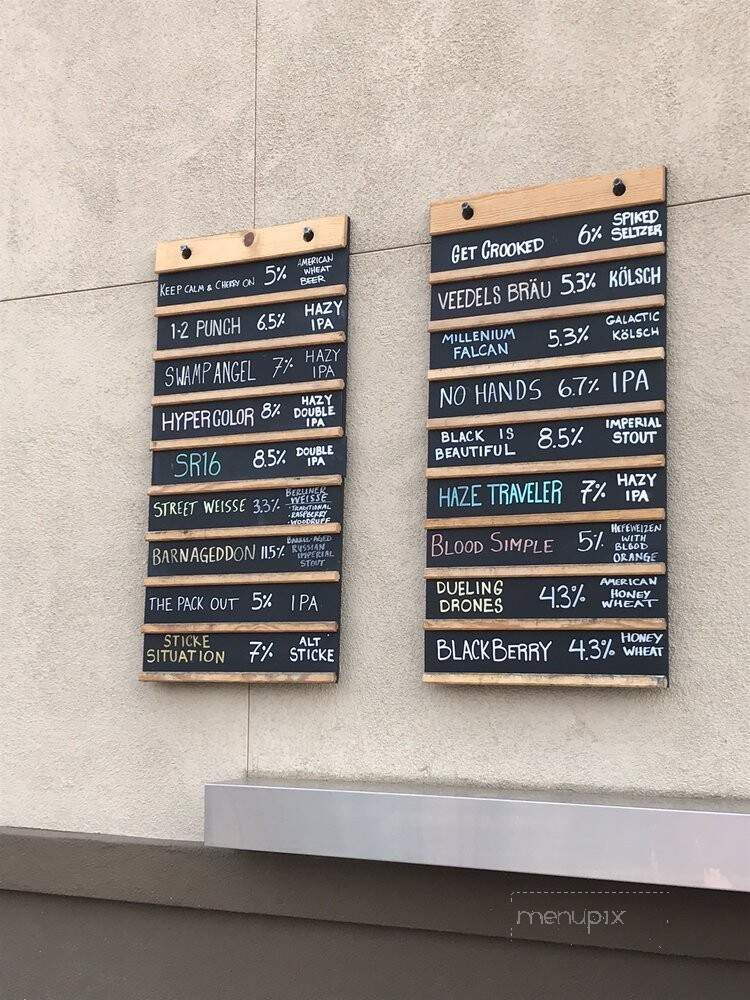 KEEP CALM & CHERRY ON 5% AMERICAN WHEAT BEER
1-2 PUNCH 6.5% HAZY IPA
SWAMP ANGEL 7% HAZY IPA
HYPERCOLOR 8% HAZY DOUBLE IPA
SR16 8.5% DOUBLE IPA
STREET WEISSE 3.3% BERLINER WEISSE
• TRADITIONAL
• RASPBERRY
• WOODRUFF
BARNAGEDDON 11.5% BARREL-AGED RUSSIAN IMPERIAL STOUT
THE PACK OUT 5% IPA
STICKE SITUATION 7% ALT STICKE
GET CROOKED 6% SPIKED SELTZER
VEEDELS BRÄU 5.3% KÖLSCH
MILLENIUM FALCAN 5.3% GALACTIC KÖLSCH
NO HANDS 6.7% IPA
BLACK IS BEAUTIFUL 8.5% IMPERIAL STOUT
HAZE TRAVELER 7% HAZY IPA
BLOOD SIMPLE 5% HEFEWEIZEN WITH BLOOD ORANGE
DUELING DRONES 4.3% AMERICAN HONEY WHEAT
BLACKBERRY 4.3% HONEY WHEAT
menupix